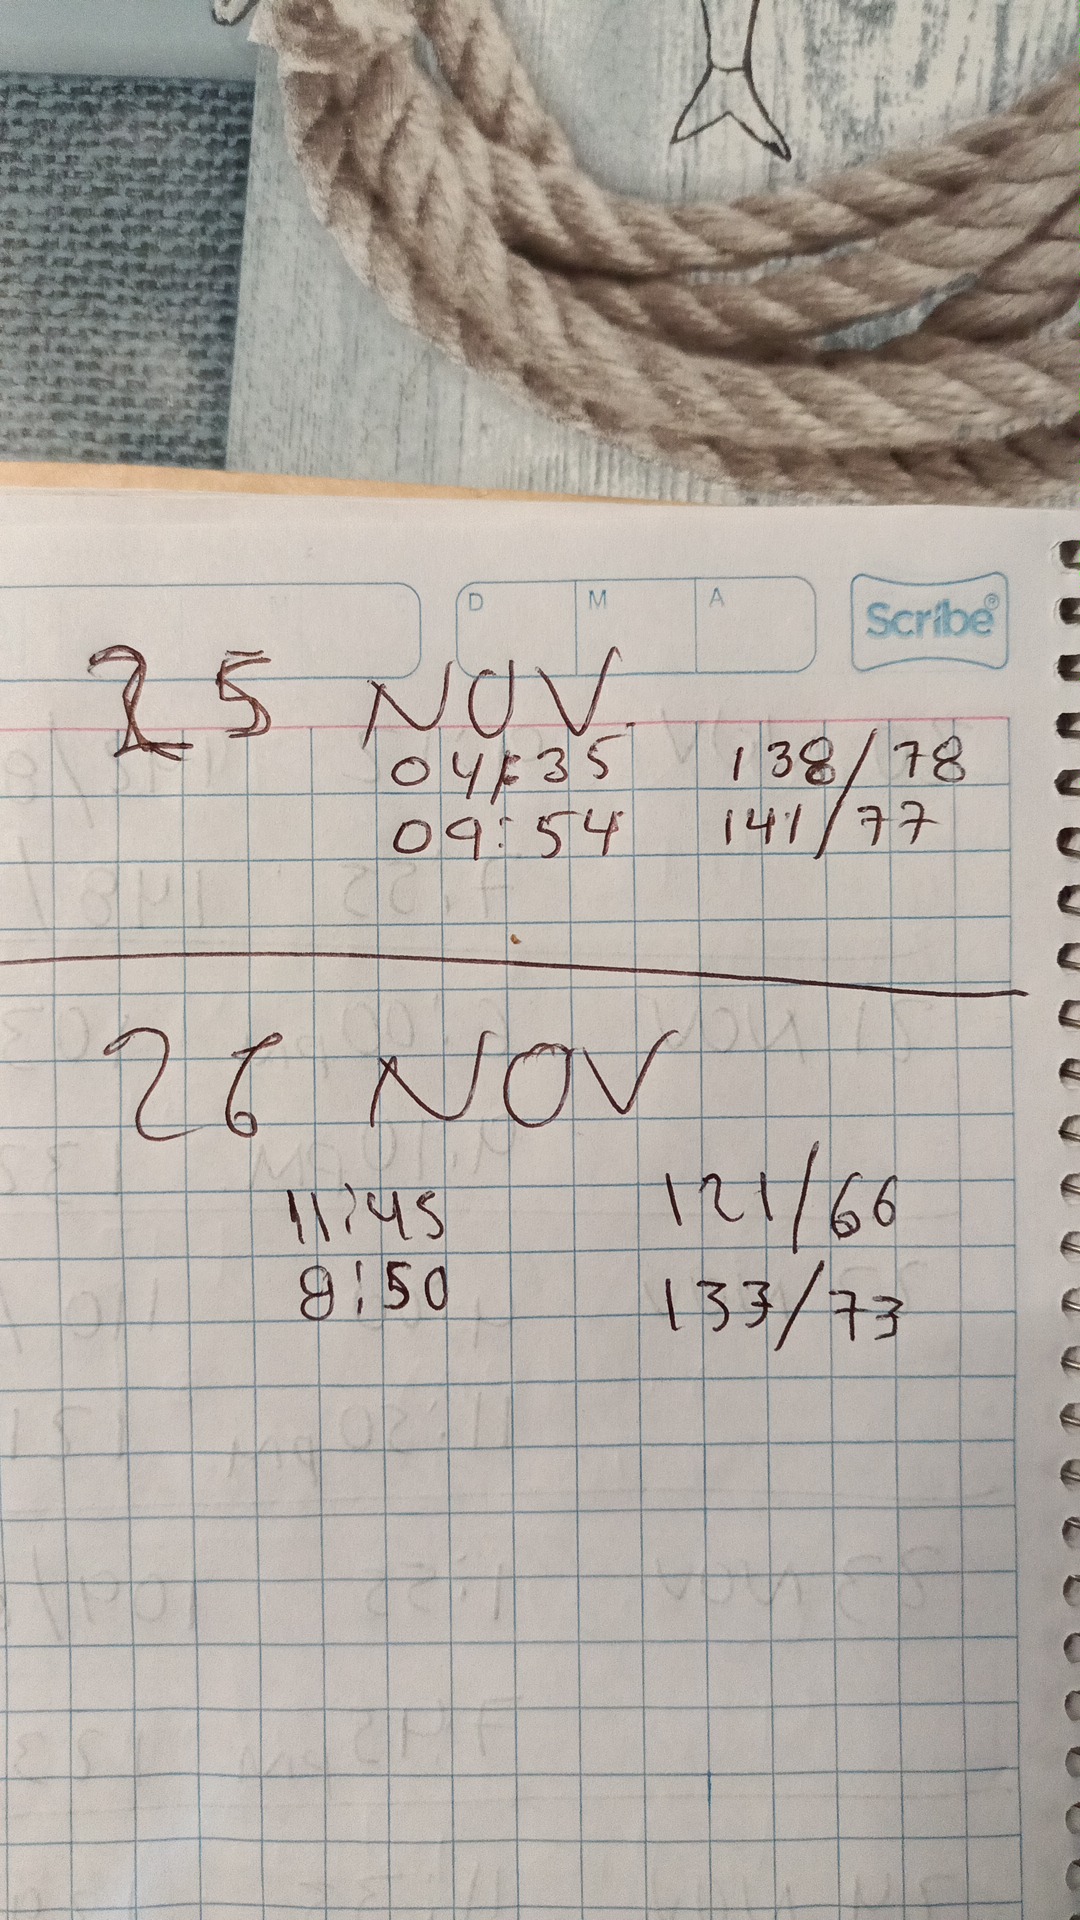 D M A Scribe®
25 NOV.
04:35 138/78
09:54 141/77
26 NOV
11:45 121/66
8:50 133/73